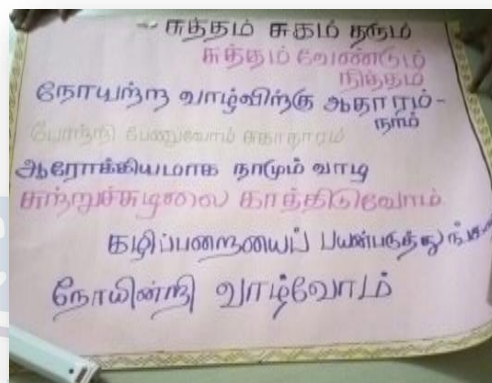 சுத்தம் சுகம் தரும்
சுத்தம் வேண்டும்
நித்தம்
நோயற்ற வாழ்விற்கு ஆதாரம் -
நாம்
போற்றி பேணுவோம் சுகாதாரம்
ஆரோக்கியமாக நாமும் வாழ
சுற்றுச்சுழலை காத்திடுவோம்
கழிப்பறையைப் பயன்படுத்துங்கள்
நோயின்றி வாழ்வோம்